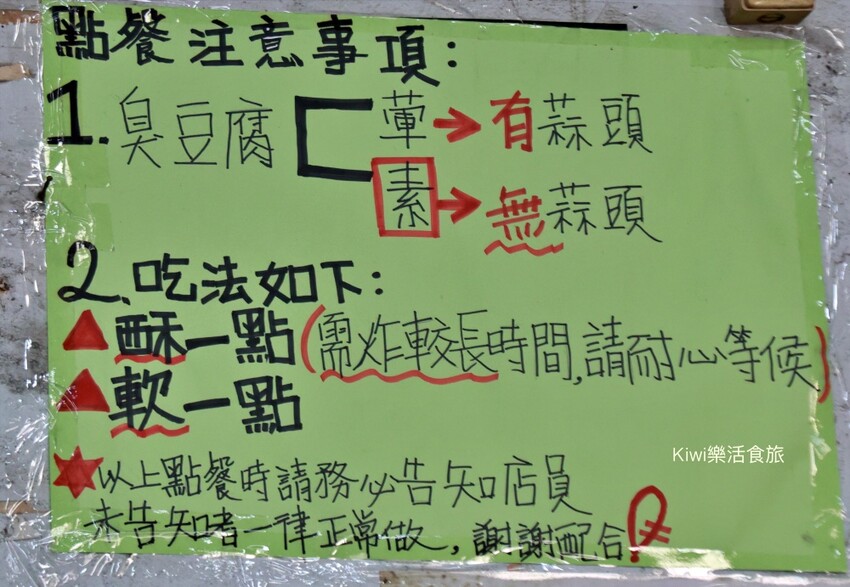 點餐注意事項:
1. 臭豆腐 葷→有蒜頭
素→無蒜頭
2. 吃法如下:
▲酥一點(需炸較長時間,請耐心等候)
▲軟一點
★以上點餐時請務必告知店員
未告知者一律正常做,謝謝配合
Kiwi樂活食旅